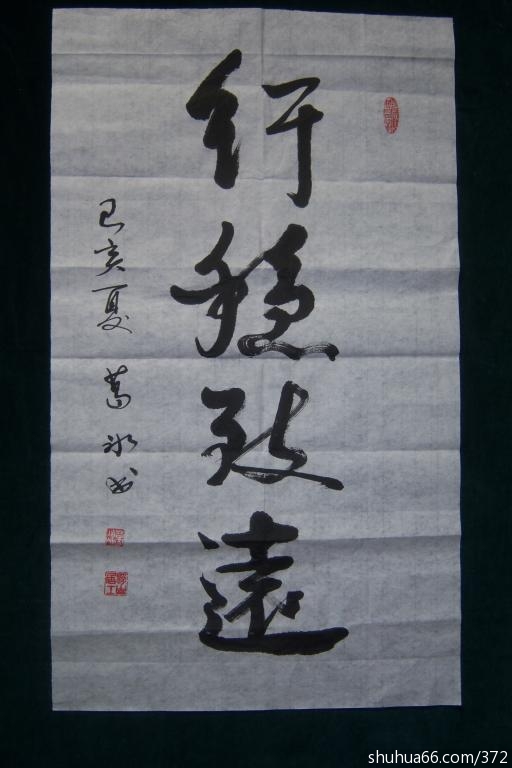 行稳致遠
己亥夏 葛冰书
shuhua66.com/372